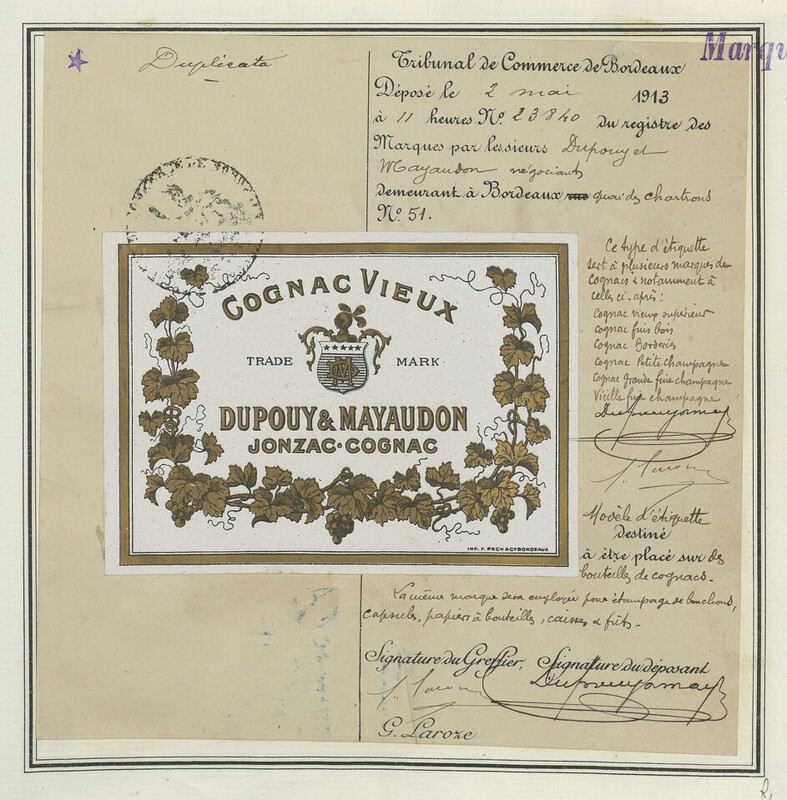 Duplicata
Marqu
Tribunal de Commerce de Bordeaux
Déposé le 2 mai 1913
à 11 heures No. 23840 du registre des
Marques par les sieurs Dupouy et
Mayaudon négociants
demeurant à Bordeaux quai des chartrons
No. 51.
COGNAC VIEUX
TRADE MARK
DUPOUY & MAYAUDON
JONZAC·COGNAC
IMP. F. PECH & CY BORDEAUX
Ce type d'étiquette
sert à plusieurs marques de
Cognacs & notamment à
celles ci-après :
Cognac vieux supérieur
Cognac fins bois
Cognac Borderies
Cognac Petite Champagne
Cognac grande fine champagne
Vieille fine champagne
Modèle d'étiquette
destiné
à être placé sur des
bouteilles de cognacs.
La même marque sera employée pour étampage de bouchons,
capsules, papiers à bouteilles, caisses & fûts.
Signature du Greffier, Signature du déposant
G. Laroze